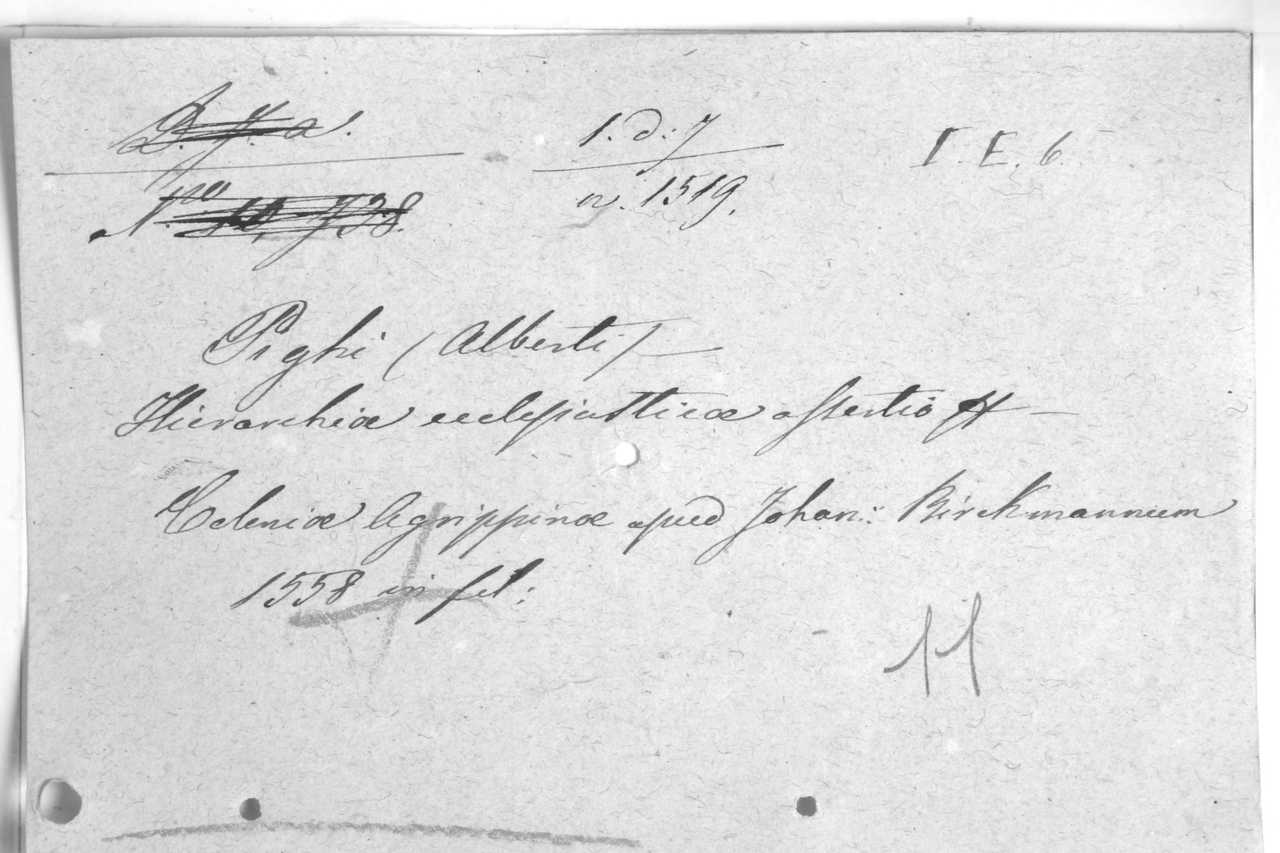 1. d. 7
I. E. 6
n. 1519.
Pighi (Alberti)
Hierarchiæ ecclesiasticæ assertio
Coloniæ Agrippinæ apud Johan: Birckmannum
1558 in fol:
11